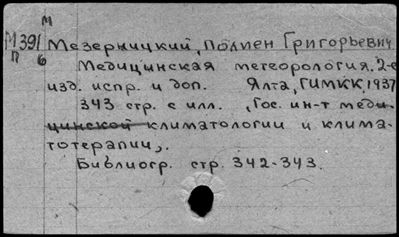 М
М391
П б
Мезерницкий, Полиен Григорьевич.
Медицинская метеорология. 2-е
изд. испр. и доп. Ялта, ГИМКК, 1937
343 стр. с илл. „Гос. ин-т меди-
цинской климатологии и клима-
тотерапии„.
Библиогр. стр. 342-343.